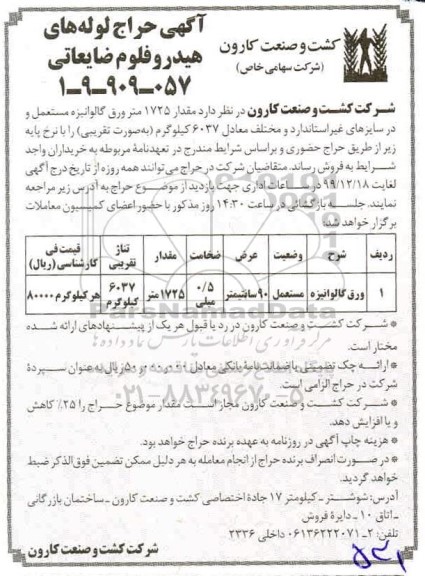 کشت و صنعت کارون
(شرکت سهامی خاص)
آگهی حراج لوله‌های
هیدروفلوم ضایعاتی
۱-۹-۹۰۹-۰۵۷
شرکت کشت و صنعت کارون در نظر دارد مقدار ۱۷۲۵ متر ورق گالوانیزه مستعمل و
در سایزهای غیراستاندارد و مختلف معادل ۶۰۳۷ کیلوگرم (به‌صورت تقریبی) را با نرخ پایه
زیر از طریق حراج حضوری و براساس شرایط مندرج در تعهدنامهٔ مربوطه به خریداران واجد
شرایط به فروش رساند. متقاضیان شرکت در حراج می‌توانند همه روزه از تاریخ درج آگهی
لغایت ۹۹/۱۲/۱۸ در ساعات اداری جهت بازدید از موضوع حراج به آدرس زیر مراجعه
نمایند. جلسه بازگشائی در ساعت ۱۴:۳۰ روز مذکور با حضور اعضای کمیسیون معاملات
برگزار خواهد شد:
ردیف شرح وضعیت عرض ضخامت مقدار تناژ تقریبی قیمت فی کارشناسی (ریال)
۱ ورق گالوانیزه مستعمل ۹۰ سانتیمتر ۰/۵ میلی ۱۷۲۵ متر ۶۰۳۷ کیلوگرم هر کیلوگرم ۸۰۰۰۰
* شرکت کشت و صنعت کارون در رد یا قبول هر یک از پیشنهادهای ارائه شده
مختار است.
* ارائه چک تضمینی یا ضمانت‌نامهٔ بانکی معادل ریال به عنوان سپردهٔ
شرکت در حراج الزامی است.
* شرکت کشت و صنعت کارون مجاز است مقدار موضوع حراج را ۲۵٪ کاهش
و یا افزایش دهد.
* هزینه چاپ آگهی در روزنامه به عهده برنده حراج خواهد بود.
* در صورت انصراف برنده حراج از انجام معامله به هر دلیل ممکن تضمین فوق‌الذکر ضبط
خواهد گردید.
آدرس: شوشتر - کیلومتر ۱۷ جادهٔ اختصاصی کشت و صنعت کارون - ساختمان بازرگانی
- اتاق ۱۰ - دایرهٔ فروش
تلفن: ۲-۰۶۱۳۶۲۲۲۰۷۱ داخلی ۲۳۳۶
شرکت کشت و صنعت کارون
ParsNamadData
مرکز فرآوری اطلاعات پارس نماد داده‌ها
۰۲۱-۸۸۳۴۹۶۷۰-۵